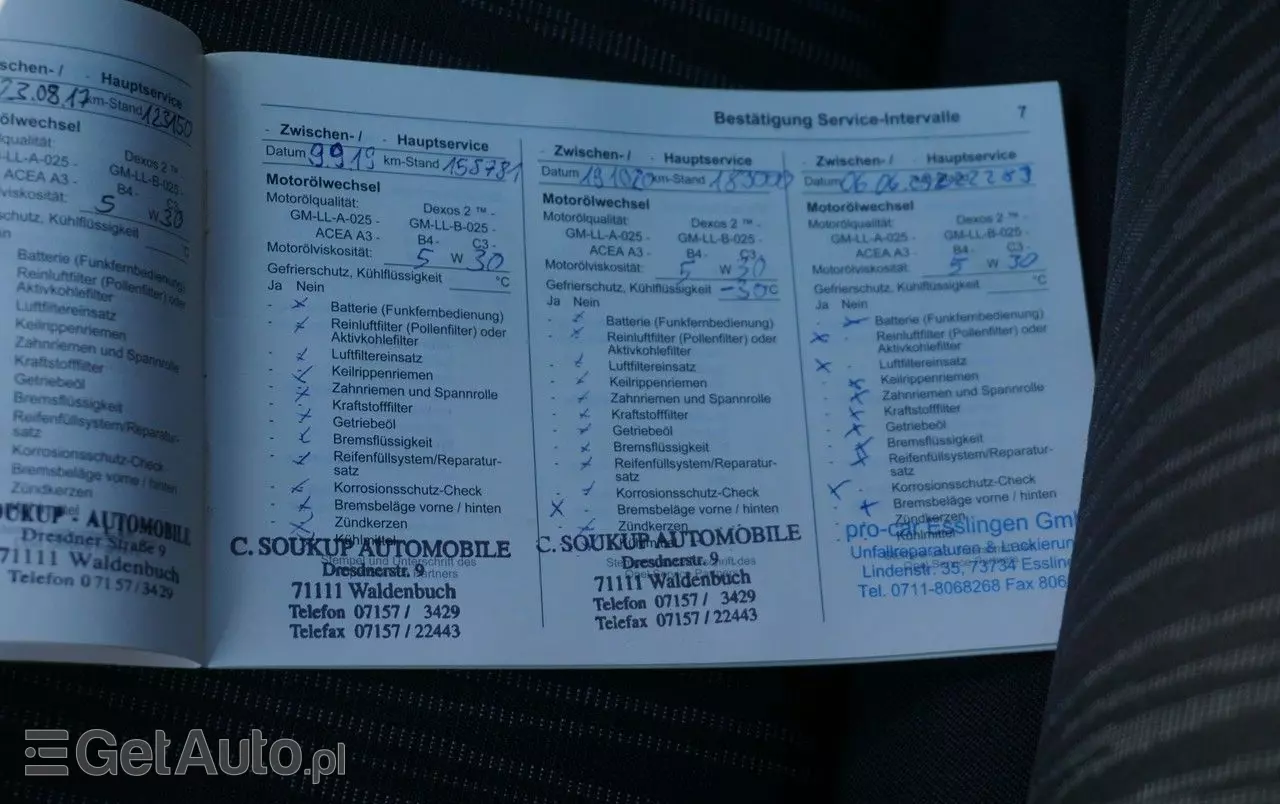 schen- / - Hauptservice
23.08.17 km-Stand 123150
ölwechsel
qualität: Dexos 2 ™ -
-LL-A-025 - GM-LL-B-025 -
ACEA A3 - B4 -
viskosität: 5 W 30
schutz, Kühlflüssigkeit
in
Batterie (Funkfernbedienung)
Reinluftfilter (Pollenfilter) oder
Aktivkohlefilter
Luftfiltereinsatz
Keilrippenriemen
Zahnriemen und Spannrolle
Kraftstofffilter
Getriebeöl
Bremsflüssigkeit
Reifenfüllsystem/Reparatur-
satz
Korrosionsschutz-Check
Bremsbeläge vorne / hinten
Zündkerzen
OUKUP - AUTOMOBILE
Dresdner Straße 9
71111 Waldenbuch
Telefon 07157/3429
Bestätigung Service-Intervalle 7
- Zwischen- / - Hauptservice
Datum 9 9 19 km-Stand 158781
Motorölwechsel
Motorölqualität: Dexos 2 ™ -
GM-LL-A-025 - GM-LL-B-025 -
ACEA A3 - B4 - C3 -
Motorölviskosität: 5 W 30
Gefrierschutz, Kühlflüssigkeit °C
Ja Nein
Batterie (Funkfernbedienung)
Reinluftfilter (Pollenfilter) oder
Aktivkohlefilter
Luftfiltereinsatz
Keilrippenriemen
Zahnriemen und Spannrolle
Kraftstofffilter
Getriebeöl
Bremsflüssigkeit
Reifenfüllsystem/Reparatur-
satz
Korrosionsschutz-Check
Bremsbeläge vorne / hinten
Zündkerzen
Kühlmittel
C. SOUKUP AUTOMOBILE
Stempel und Unterschrift des
Dresdnerstr. 9
71111 Waldenbuch
Telefon 07157 / 3429
Telefax 07157 / 22443
- Zwischen- / - Hauptservice
Datum 191020 km-Stand 183000
Motorölwechsel
Motorölqualität: Dexos 2 ™ -
GM-LL-A-025 - GM-LL-B-025 -
ACEA A3 - B4 - C3 -
Motorölviskosität: 5 W 30
Gefrierschutz, Kühlflüssigkeit -30 °C
Ja Nein
Batterie (Funkfernbedienung)
Reinluftfilter (Pollenfilter) oder
Aktivkohlefilter
Luftfiltereinsatz
Keilrippenriemen
Zahnriemen und Spannrolle
Kraftstofffilter
Getriebeöl
Bremsflüssigkeit
Reifenfüllsystem/Reparatur-
satz
Korrosionsschutz-Check
Bremsbeläge vorne / hinten
Zündkerzen
C. SOUKUP AUTOMOBILE
Dresdnerstr. 9
71111 Waldenbuch
Telefon 07157 / 3429
Telefax 07157 / 22443
- Zwischen- / - Hauptservice
Datum 06.06.
Motorölwechsel
Motorölqualität: Dexos 2 ™ -
GM-LL-A-025 - GM-LL-B-025 -
ACEA A3 - B4 - C3 -
Motorölviskosität: 5 W 30
Gefrierschutz, Kühlflüssigkeit °C
Ja Nein
Batterie (Funkfernbedienung)
Reinluftfilter (Pollenfilter) oder
Aktivkohlefilter
Luftfiltereinsatz
Keilrippenriemen
Zahnriemen und Spannrolle
Kraftstofffilter
Getriebeöl
Bremsflüssigkeit
Reifenfüllsystem/Reparatur-
satz
Korrosionsschutz-Check
Bremsbeläge vorne / hinten
Zündkerzen
Kühlmittel
pro-car Esslingen Gmb
Unfallreparaturen & Lackierun
Lindenstr. 35, 73734 Essling
Tel. 0711-8068268 Fax 806
GetAuto.pl